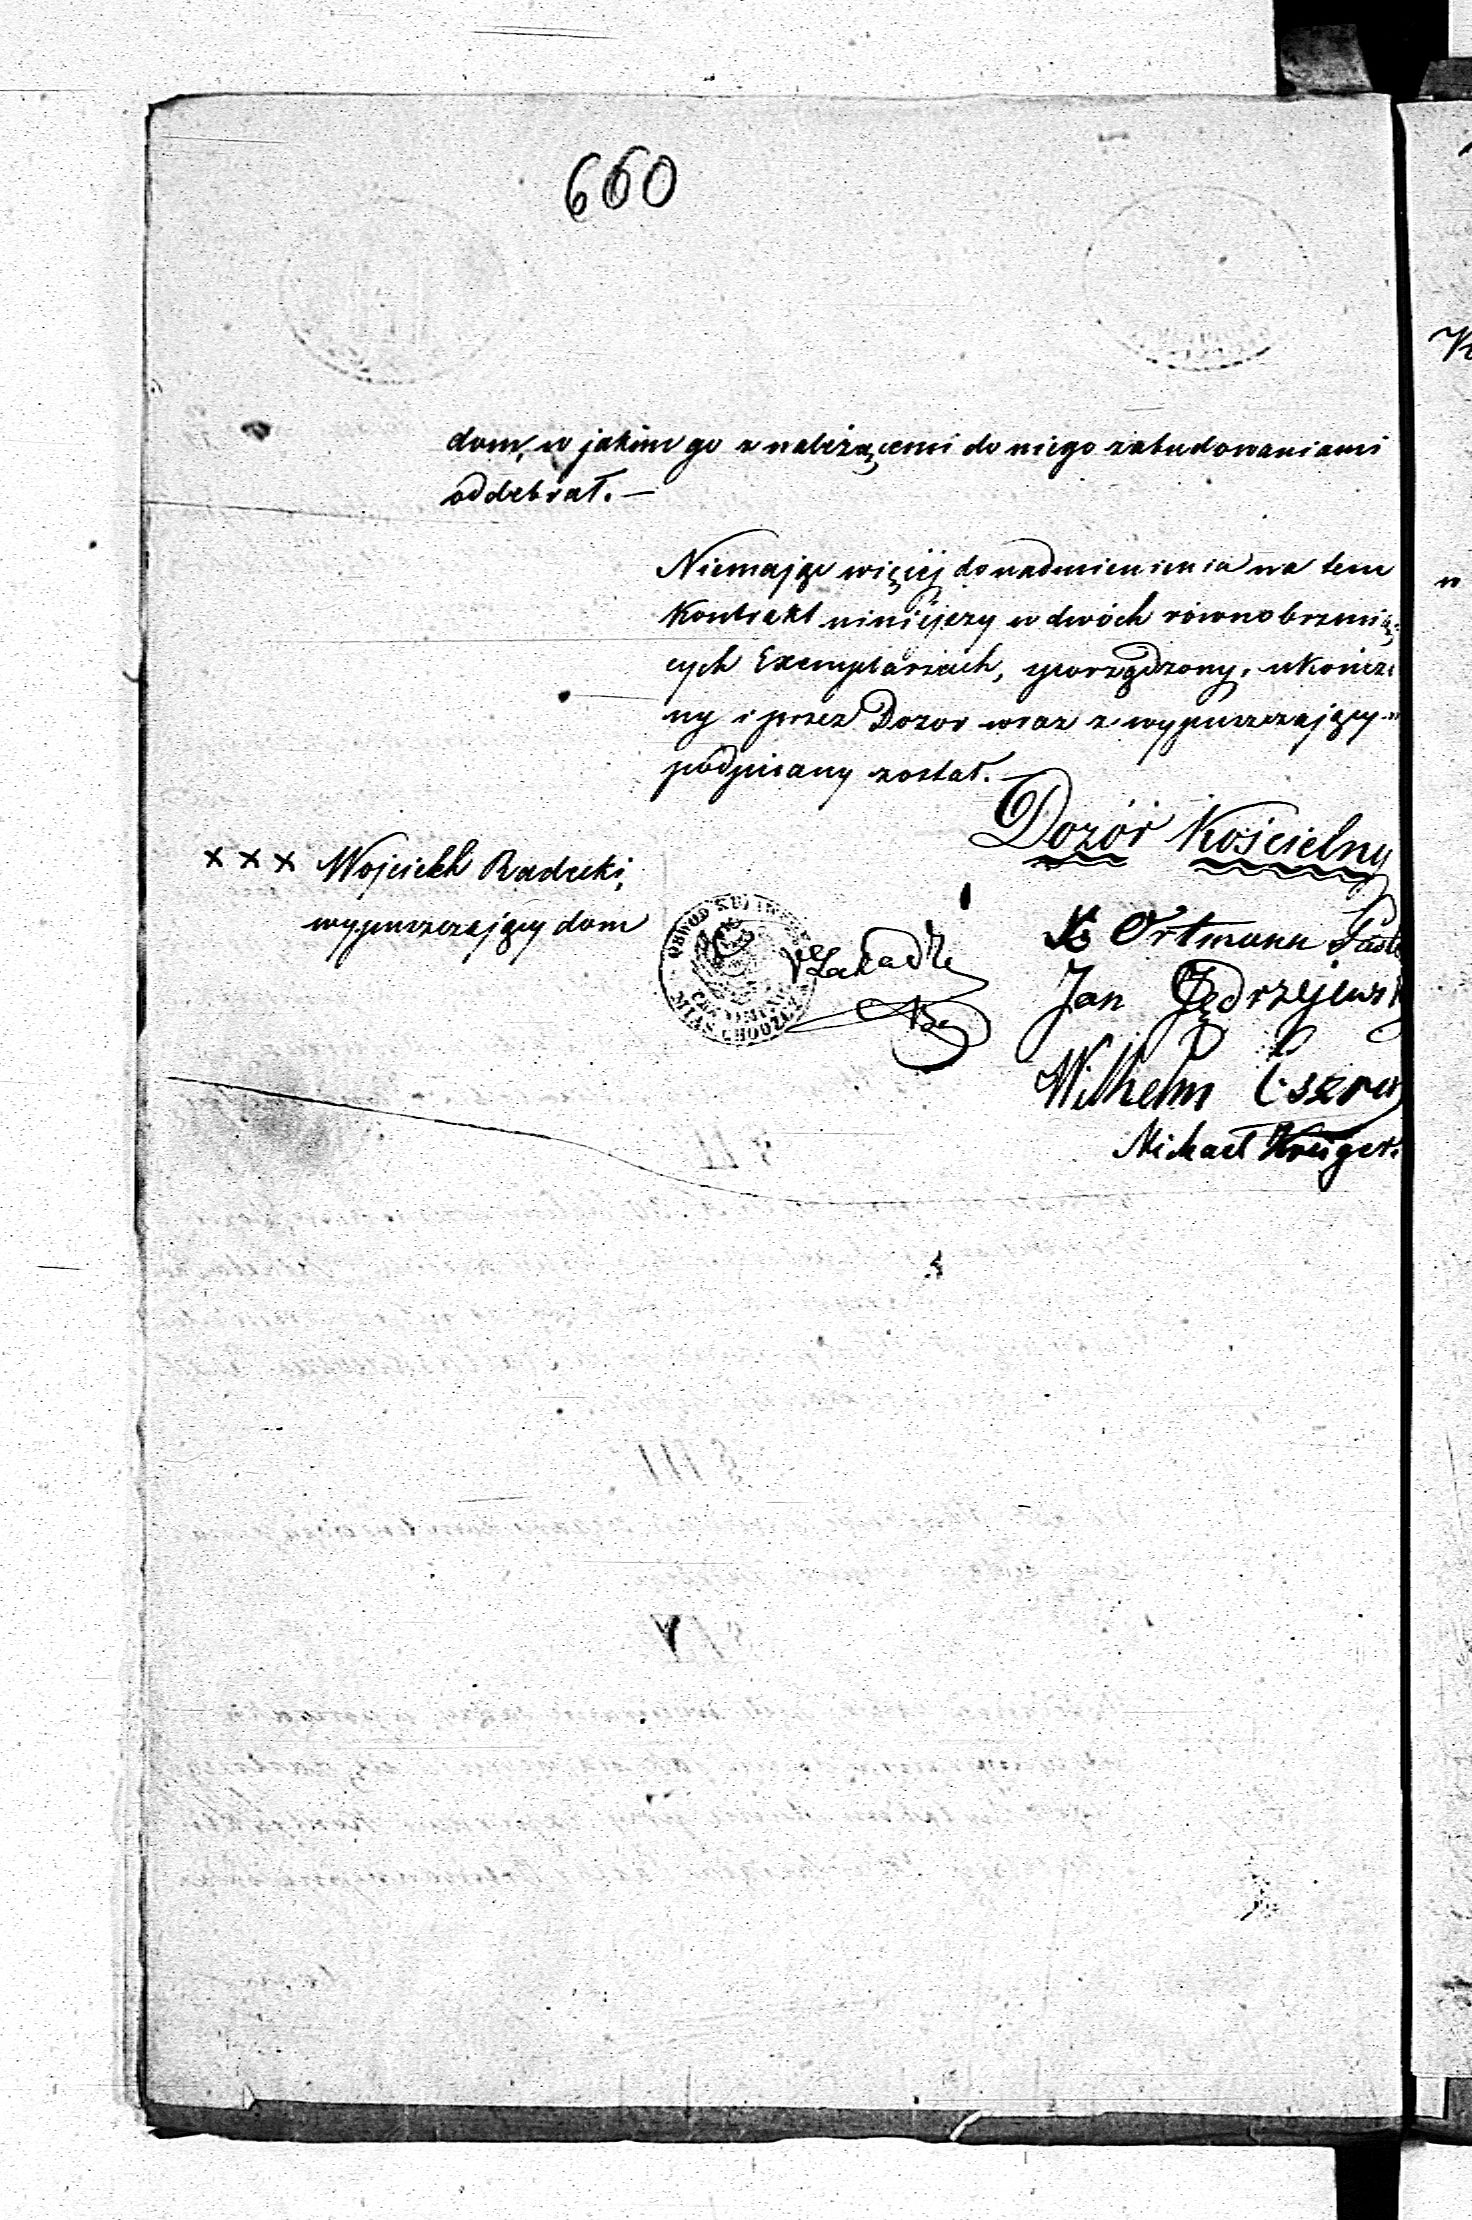 660
dom, w jakim go z należącemi do niego zabudowaniami
oddebrał. —
Niemając więcéj do nadmienienia na tem
Kontrakt niniejszy w dwóch równobrzmią-
cych Exemplarzach, sporządzony, ukończo
ny i przez Dozor wraz z wypuszczający
podpisany został. —
Dozór Kościelny
x x x Wojciekh Radecki,
wypuszczający dom
OBWOD
MIAS CHODZCZ
K Ortmann Past
Jan Jędrzejews
Wilhelm
Michael Krüger.